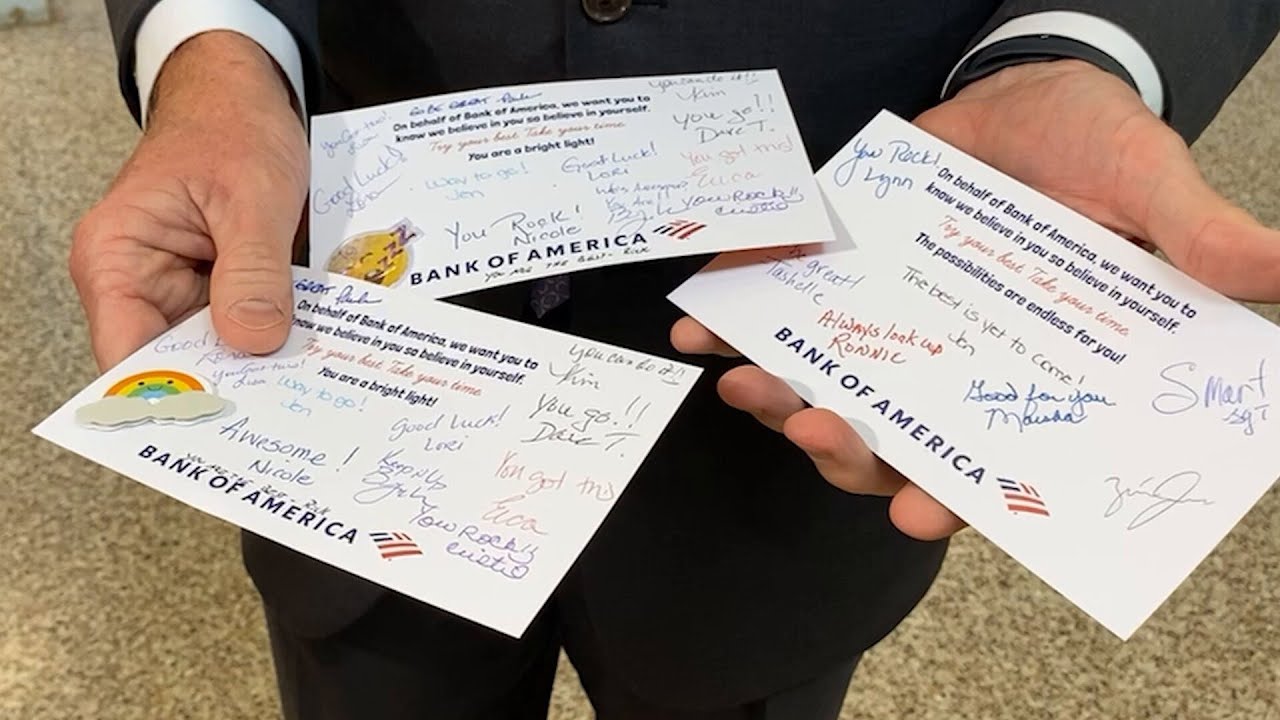 GO BE GREAT
you can do it!!
Kim
On behalf of Bank of America, we want you to
know we believe in you so believe in yourself.
Try your best Take your time
You are a bright light!
You go!!
Dave T.
You got this!
Good Luck!
Way to go!
Jen
Good Luck!
LORI
You got this!
Erica
You Are!!
You Rock!
Nicole
You Rock!!
BANK OF AMERICA
YOU ARE THE BEST - RICK
GREAT
On behalf of Bank of America, we want you to
know we believe in you so believe in yourself.
Try your best Take your time
You are a bright light!
Good
You Got this!
Lisa
Way to go!
Jen
you can do it!!
Kim
You go!!
Dave T.
Good Luck!
LORI
Awesome!
Nicole
Keep it Up
You got this
Erica
You Rock!!
YOU ARE THE BEST - RICK
BANK OF AMERICA
You Rock!
Lynn
On behalf of Bank of America, we want you to
know we believe in you so believe in yourself.
Try your best Take your time
The possibilities are endless for you!
great!
Tashelle
The best is yet to come!
Jen
Always look up
RONNIE
Good for you
Maisha
Smart
Sgt
BANK OF AMERICA